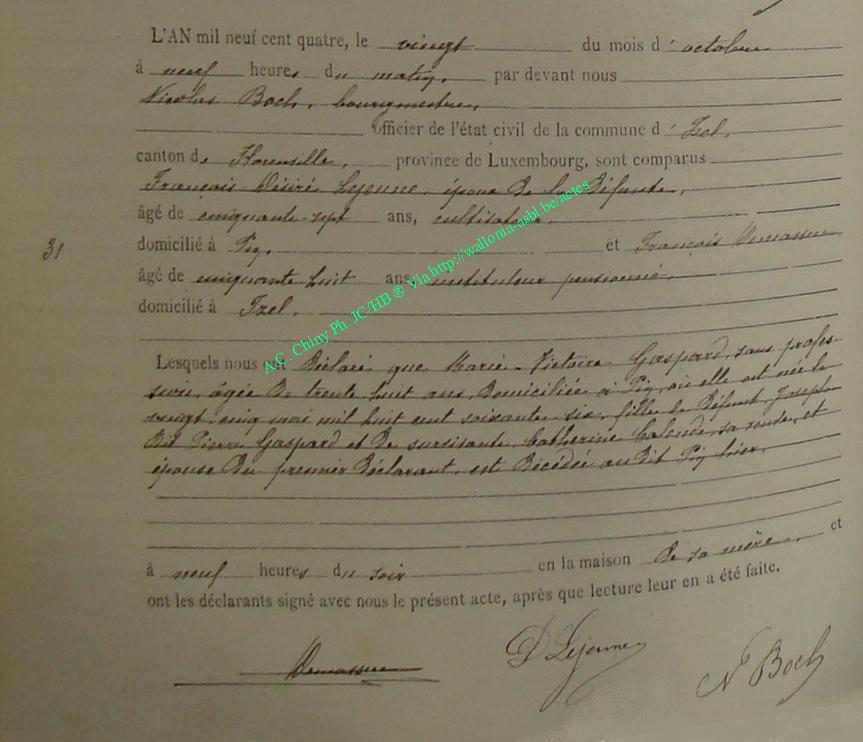 L'AN mil neuf cent quatre, le vingt du mois d'octobre
à neuf heures du matin, par devant nous
Nicolas Boch, bourgmestre,
officier de l'état civil de la commune d'Izel,
canton de Florenville, province de Luxembourg, sont comparus
François Désiré Lejeune, époux de la défunte,
âgé de cinquante sept ans, cultivateur,
31
domicilié à Pin, et François Demasure
âgé de cinquante huit ans, instituteur pensionné,
domicilié à Izel.
A.C. Chiny Ph. JC/HB ® Via http://wallonia-asbl.be/actes
Lesquels nous ont déclaré que Marie-Victoire Gaspard, sans profes-
sion, âgée de trente huit ans, domiciliée à Pin, où elle est née le
vingt cinq mai mil huit cent soixante six, fille de défunt Joseph
dit Pierre Gaspard et de survivante Catherine sa veuve, et
épouse du premier déclarant, est décédée au dit Pin hier,
à neuf heures du soir en la maison de sa mère, et
ont les déclarants signé avec nous le présent acte, après que lecture leur en a été faite.
D Lejeune
N Boch